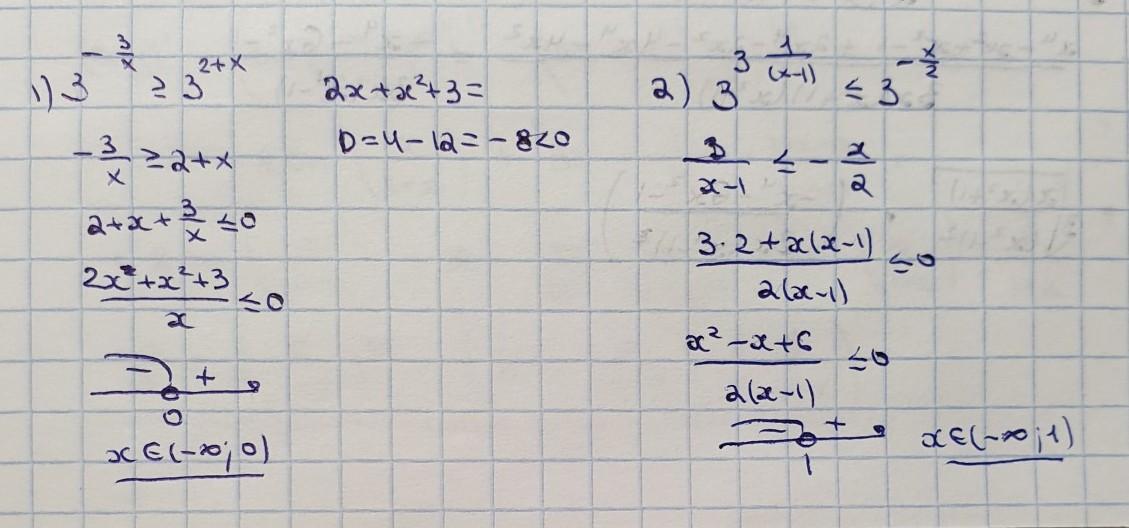 1) 3^{-\frac{3}{x}} ≥ 3^{2+x}
-\frac{3}{x} ≥ 2+x
2+x+\frac{3}{x} ≤ 0
\frac{2x+x²+3}{x} ≤ 0
- +
0
x∈(-∞; 0)
2x+x²+3=
D=4-12=-8<0
2) 3^{3\frac{1}{(x-1)}} ≤ 3^{-\frac{x}{2}}
\frac{3}{x-1} ≤ -\frac{x}{2}
\frac{3·2+x(x-1)}{2(x-1)} ≤ 0
\frac{x²-x+6}{2(x-1)} ≤ 0
- +
1
x∈(-∞; 1)